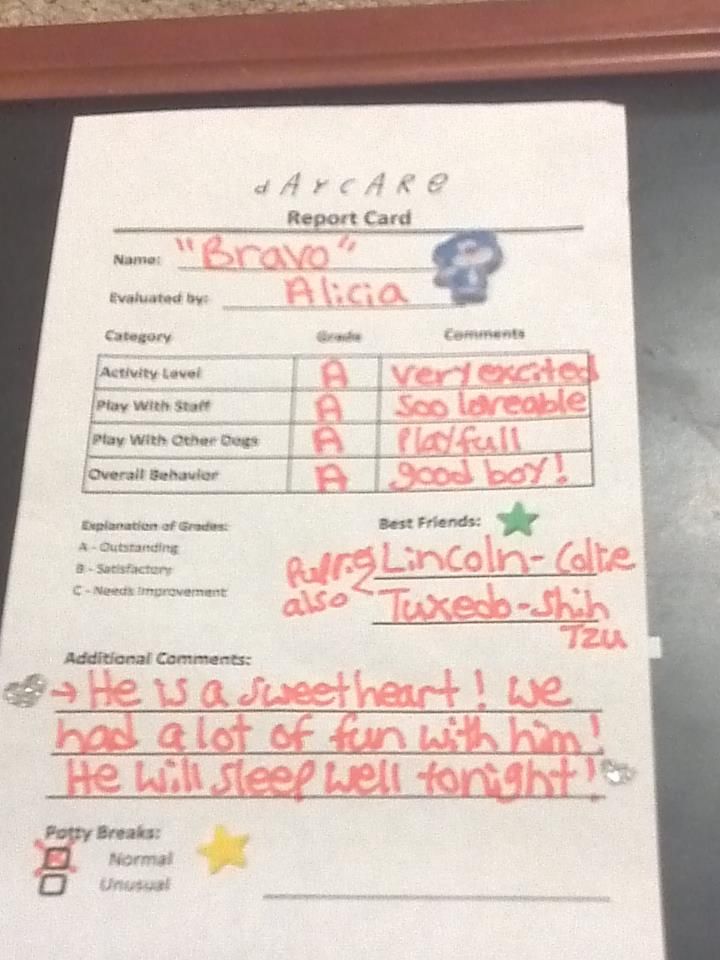 dAYCARe
Report Card
Name: "Bravo"
Evaluated by: Alicia
Category Grade Comments
Activity Level A very excited
Play With Staff A Soo loveable
Play With Other Dogs A Playfull
Overall Behavior A good boy!
Explanation of Grades:
A - Outstanding
B - Satisfactory
C - Needs Improvement
Best Friends:
Lincoln - Collie
also Tuxedo - Shih
Tzu
Additional Comments:
→ He is a sweetheart! We
had a lot of fun with him!
He will sleep well tonight!
Potty Breaks:
Normal
Unusual